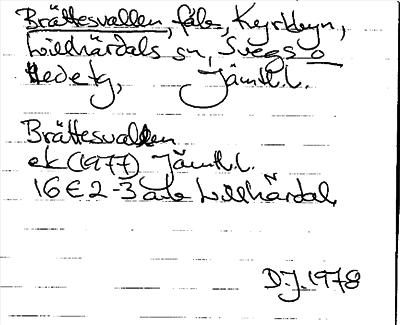 Brättesvallen, fäb., Kyrkbyn,
Lillhärdals sn, Svegs o
Hede tg, Jämtl.l.
Brättesvallen
ek (1977) Jämtl.l.
16E2-3a-b Lillhärdal
D.J. 1978